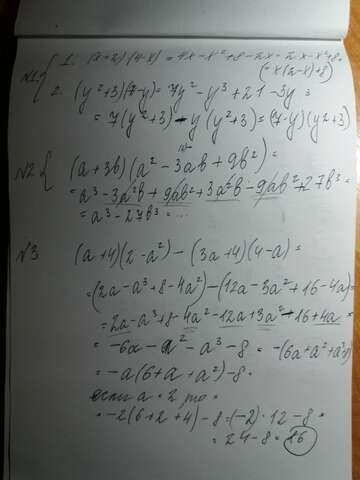 №1 { 1. (x+2)(4-x) = 4x-x²+8-2x = 2x-x²+8=
(=x(2-x)+8)
2. (y²+3)(7-y)= 7y²-y³+21-3y=
= 7(y²+3)-y(y²+3)=(7-y)(y²+3)
№2 { (a+3b)(a²-3ab+9b²)=
= a³-3a²b+9ab²+3a²b-9ab²+27b³=
= a³-27b³=...
№3. (a+4)(2-a²)-(3a+4)(4-a)=
=(2a-a³+8-4a²)-(12a-3a²+16-4a)=
= 2a-a³+8-4a²-12a+3a²-16+4a=
= -6a-a²-a³-8=-(6a+a²+a³+8)
= -a(6+a+a²)-8=
если a=2 то=
= -2(6+2+4)-8=(-2)·12-8=
= 24-8=16